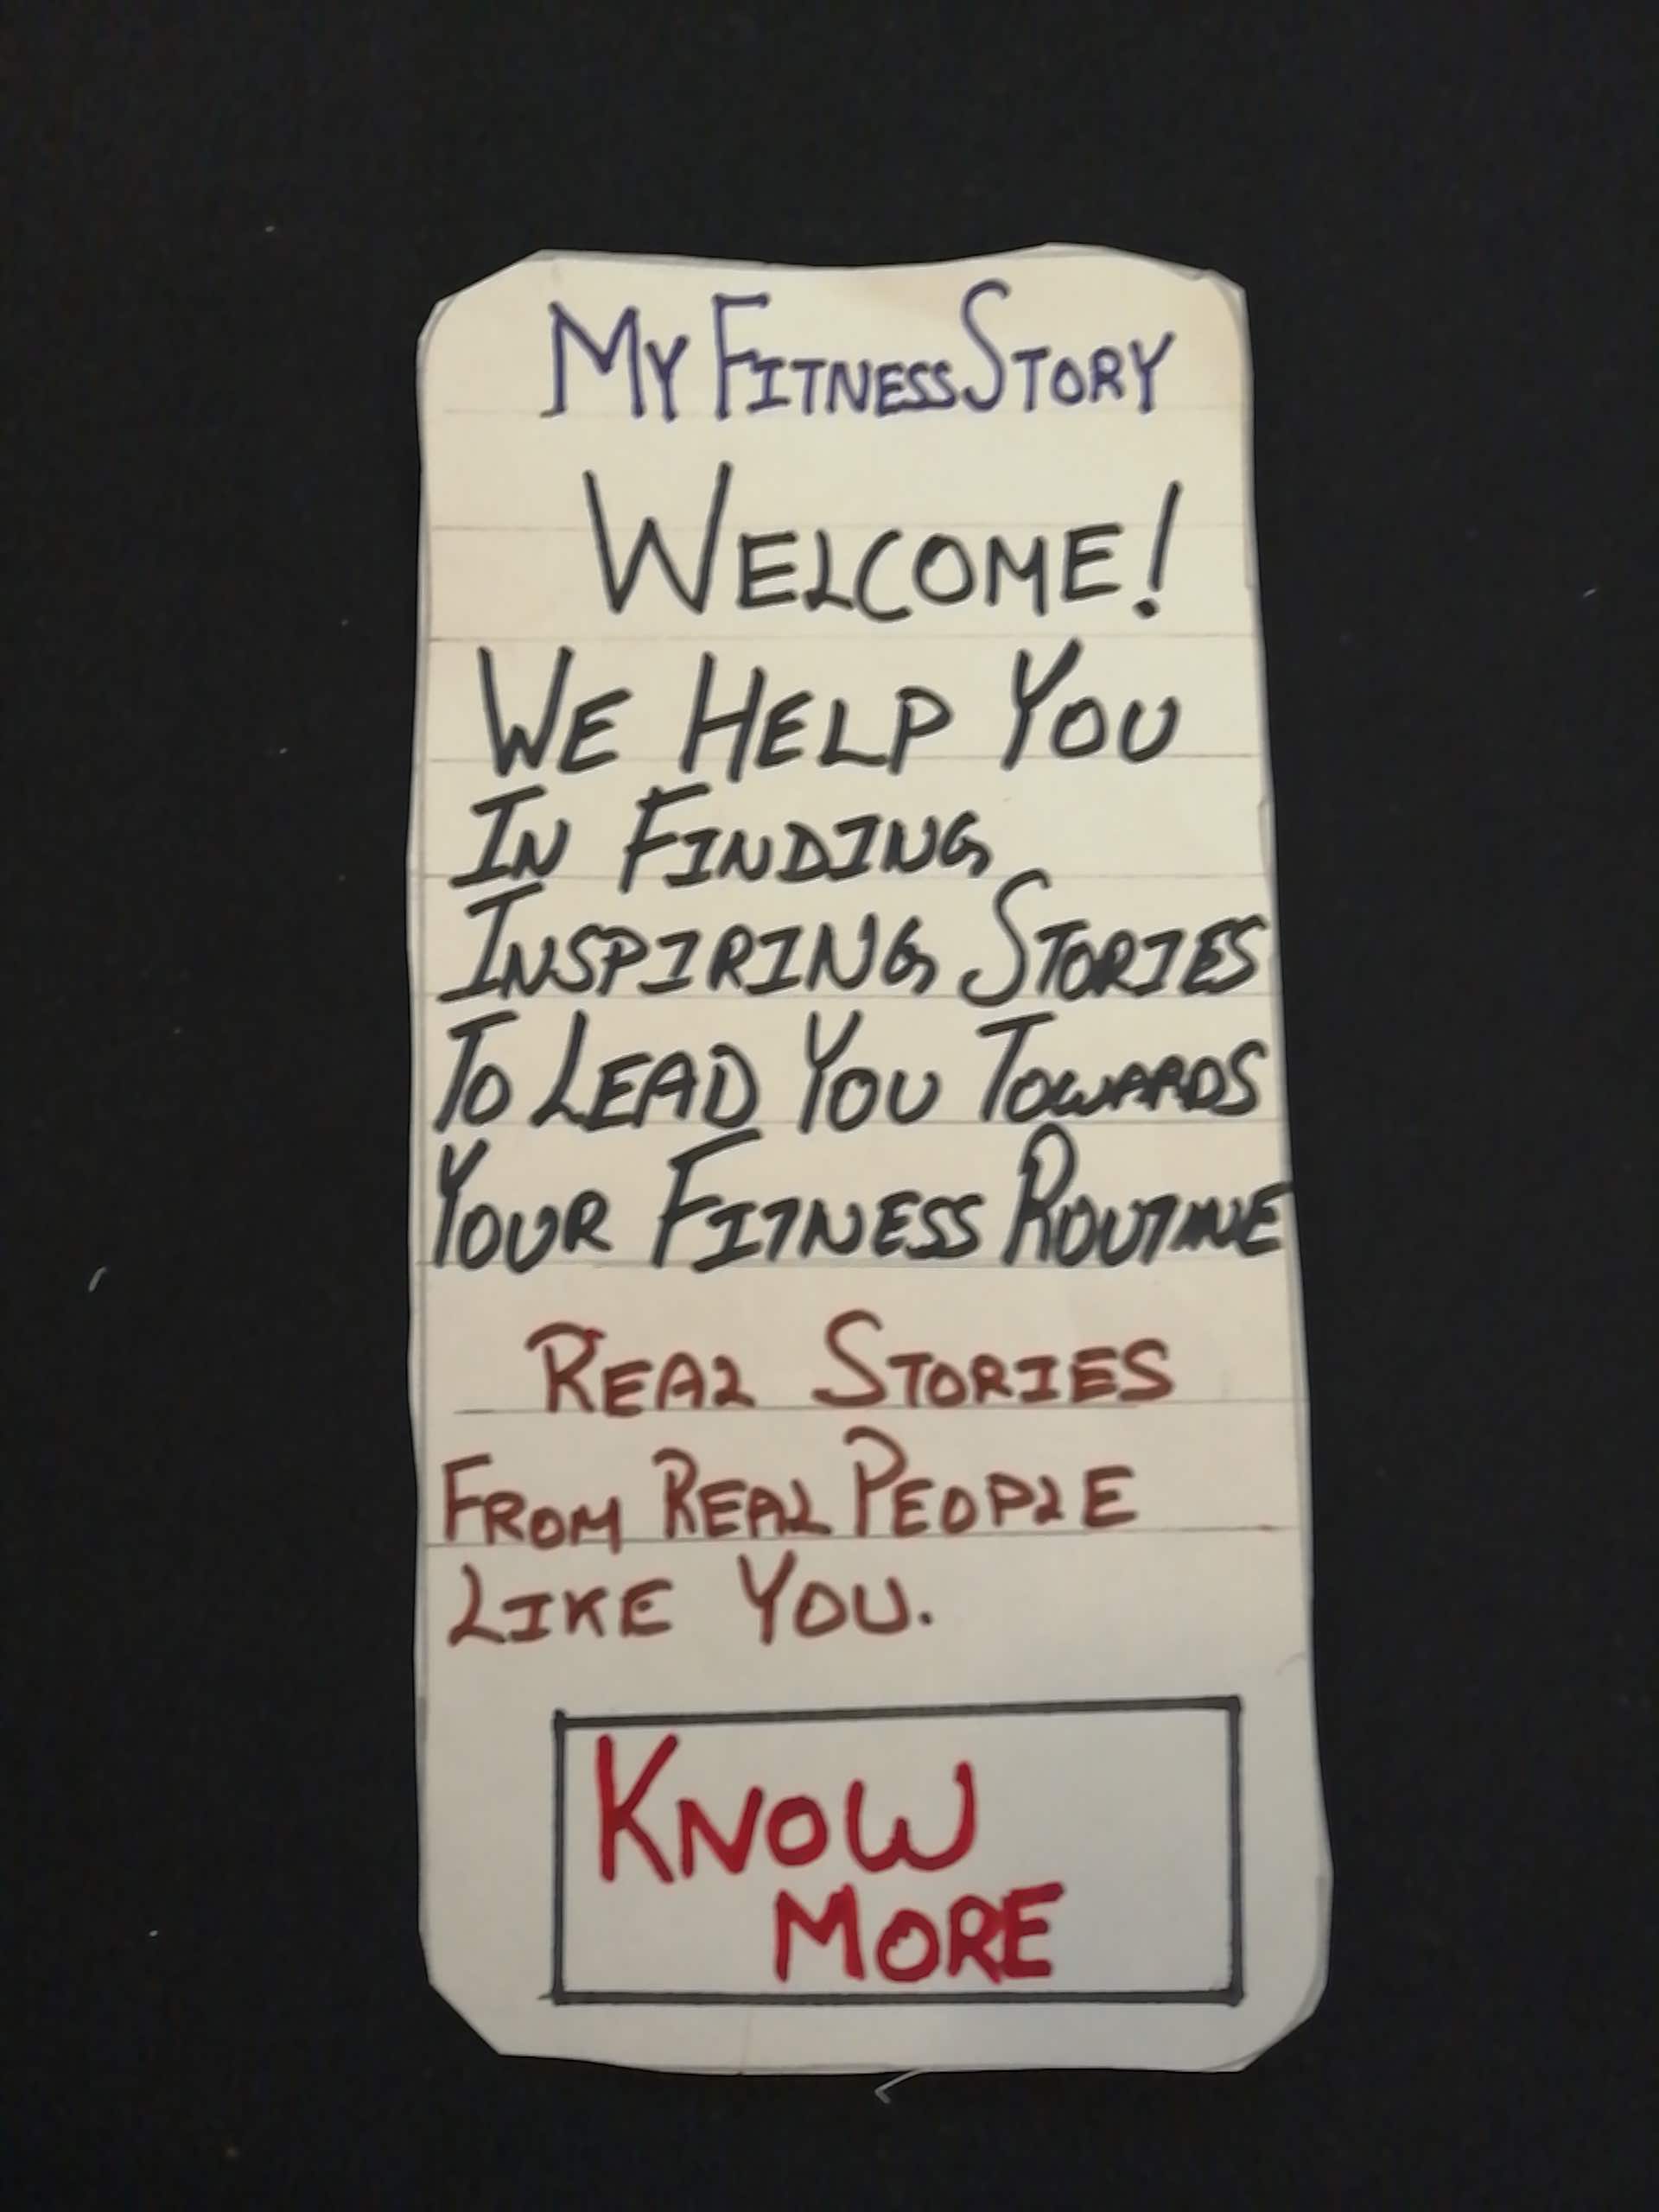 MY FITNESS STORY
WELCOME!
WE HELP YOU
IN FINDING
INSPIRING STORIES
TO LEAD YOU TOWARDS
YOUR FITNESS ROUTINE
REAL STORIES
FROM REAL PEOPLE
LIKE YOU.
KNOW
MORE